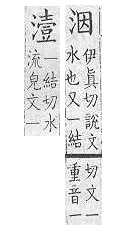 洇
伊眞切說文
水也又一結
切文一
重音一
潱
一結切水
流皃文一